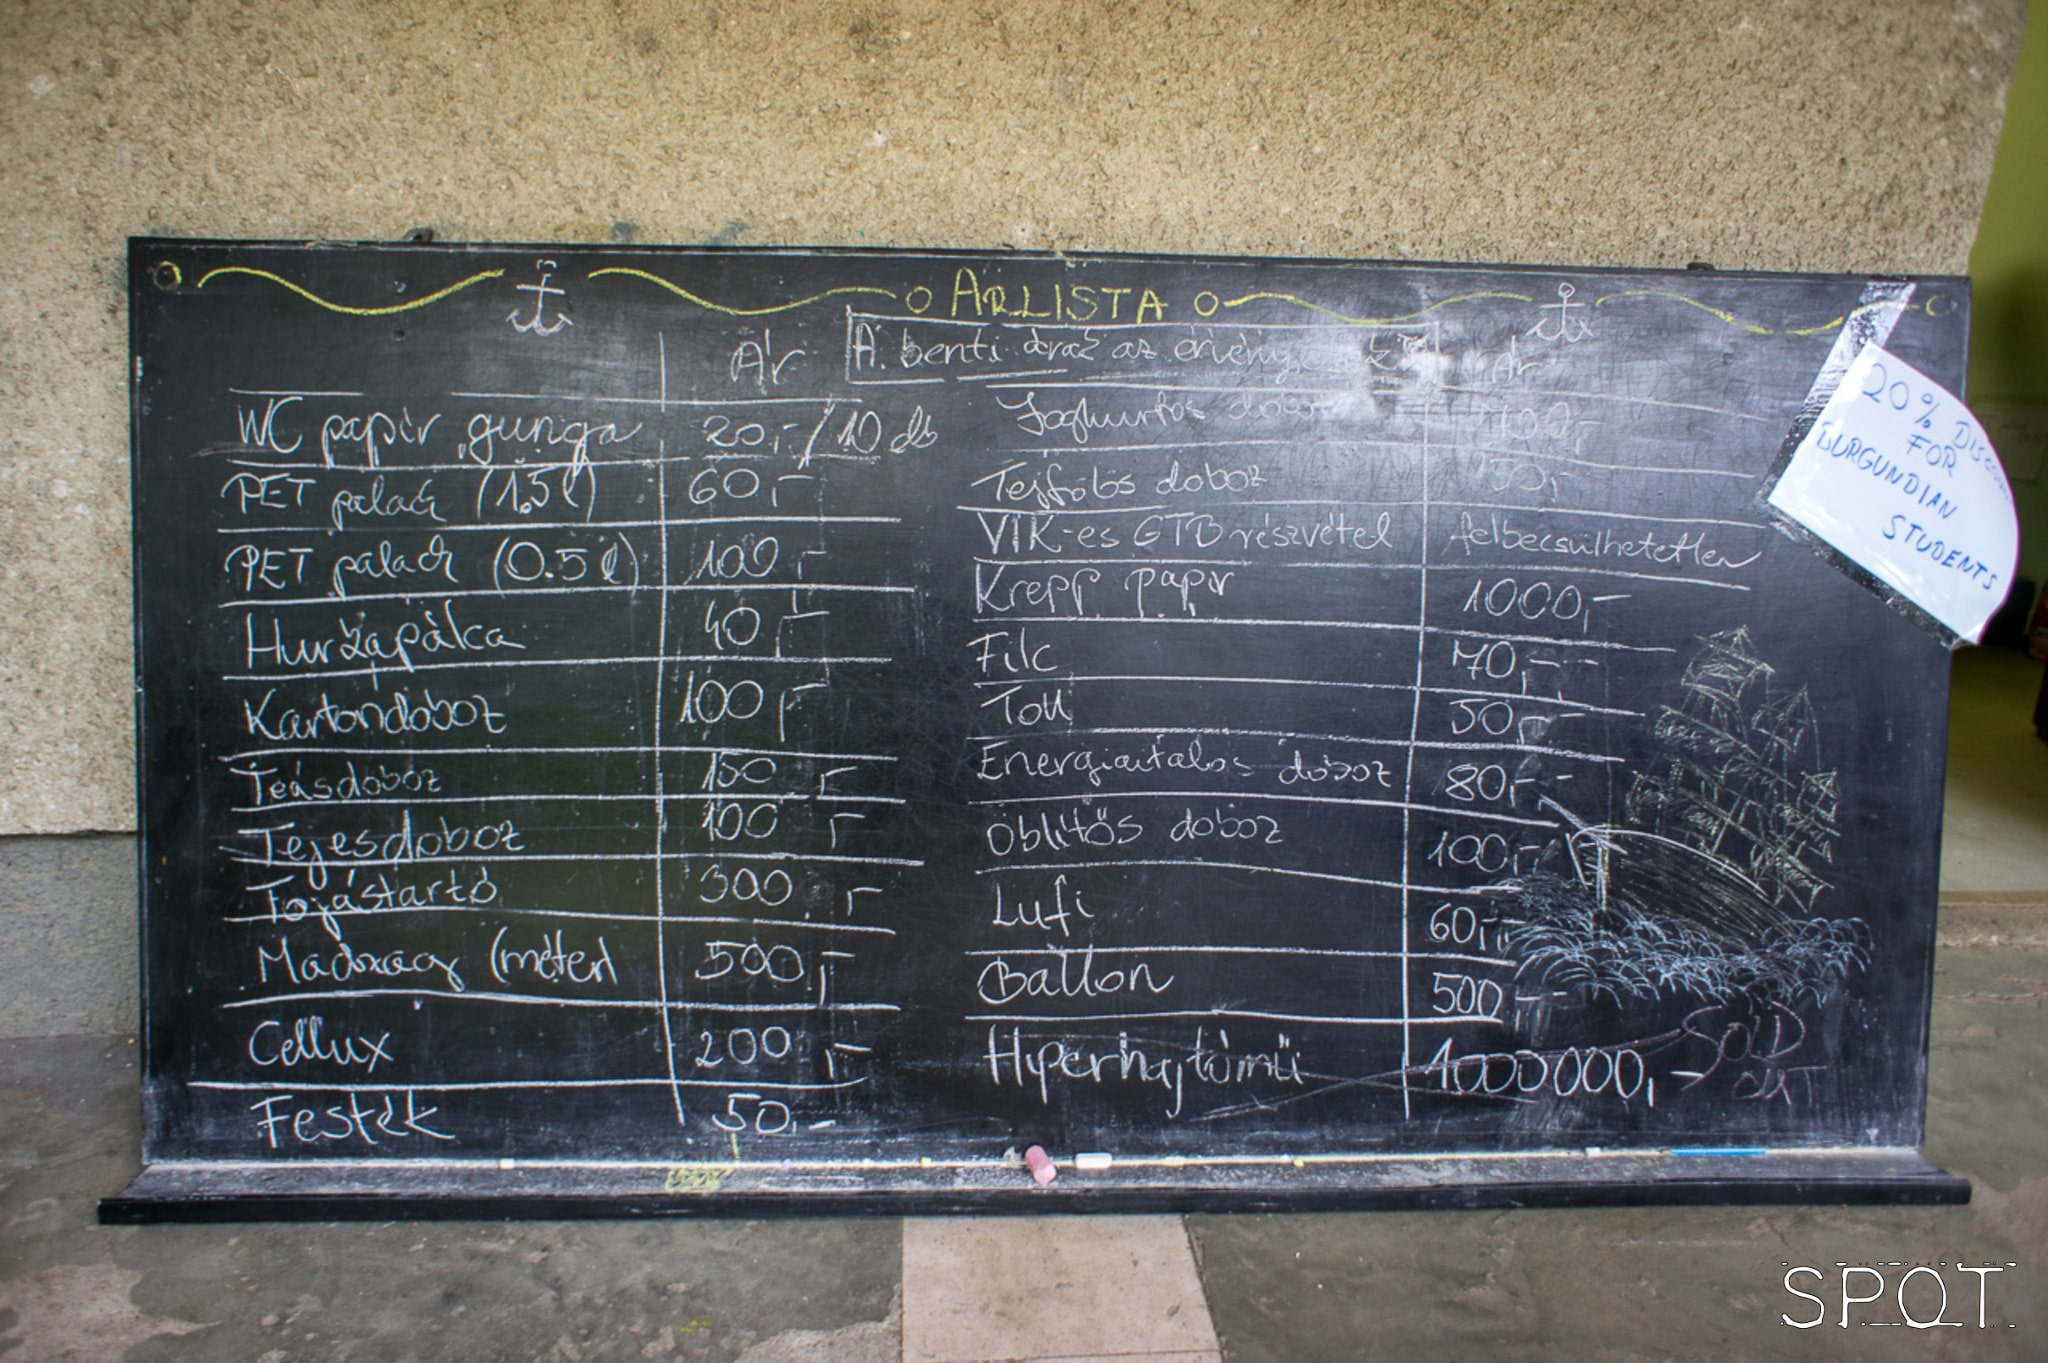 ÁRLISTA
A benti áraz az
Ár
WC papír guriga 20,- / 10 db
PET palack (1,5 l) 60,-
PET palack (0.5 l) 100,-
Hurkapálca 40,-
Kartondoboz 100,-
Teásdoboz 150,-
Tejesdoboz 100,-
Tojástartó 300,-
Madzag (méter) 500,-
Cellux 200,-
Festék 50,-
Ár
Joghurtos doboz
Tejfölös doboz 50,-
VIK-es GTB részvétel felbecsülhetetlen
Krepp papír 1000,-
Filc 70,-
Toll 50,-
Energiaitalos doboz 80,-
Öblítős doboz 100,-
Lufi 60,-
Ballon 500,-
Hiperhajtómű 1000000,-
SOLD
OUT
20% DISCOUNT
FOR
BURGUNDIAN
STUDENTS
SPOT